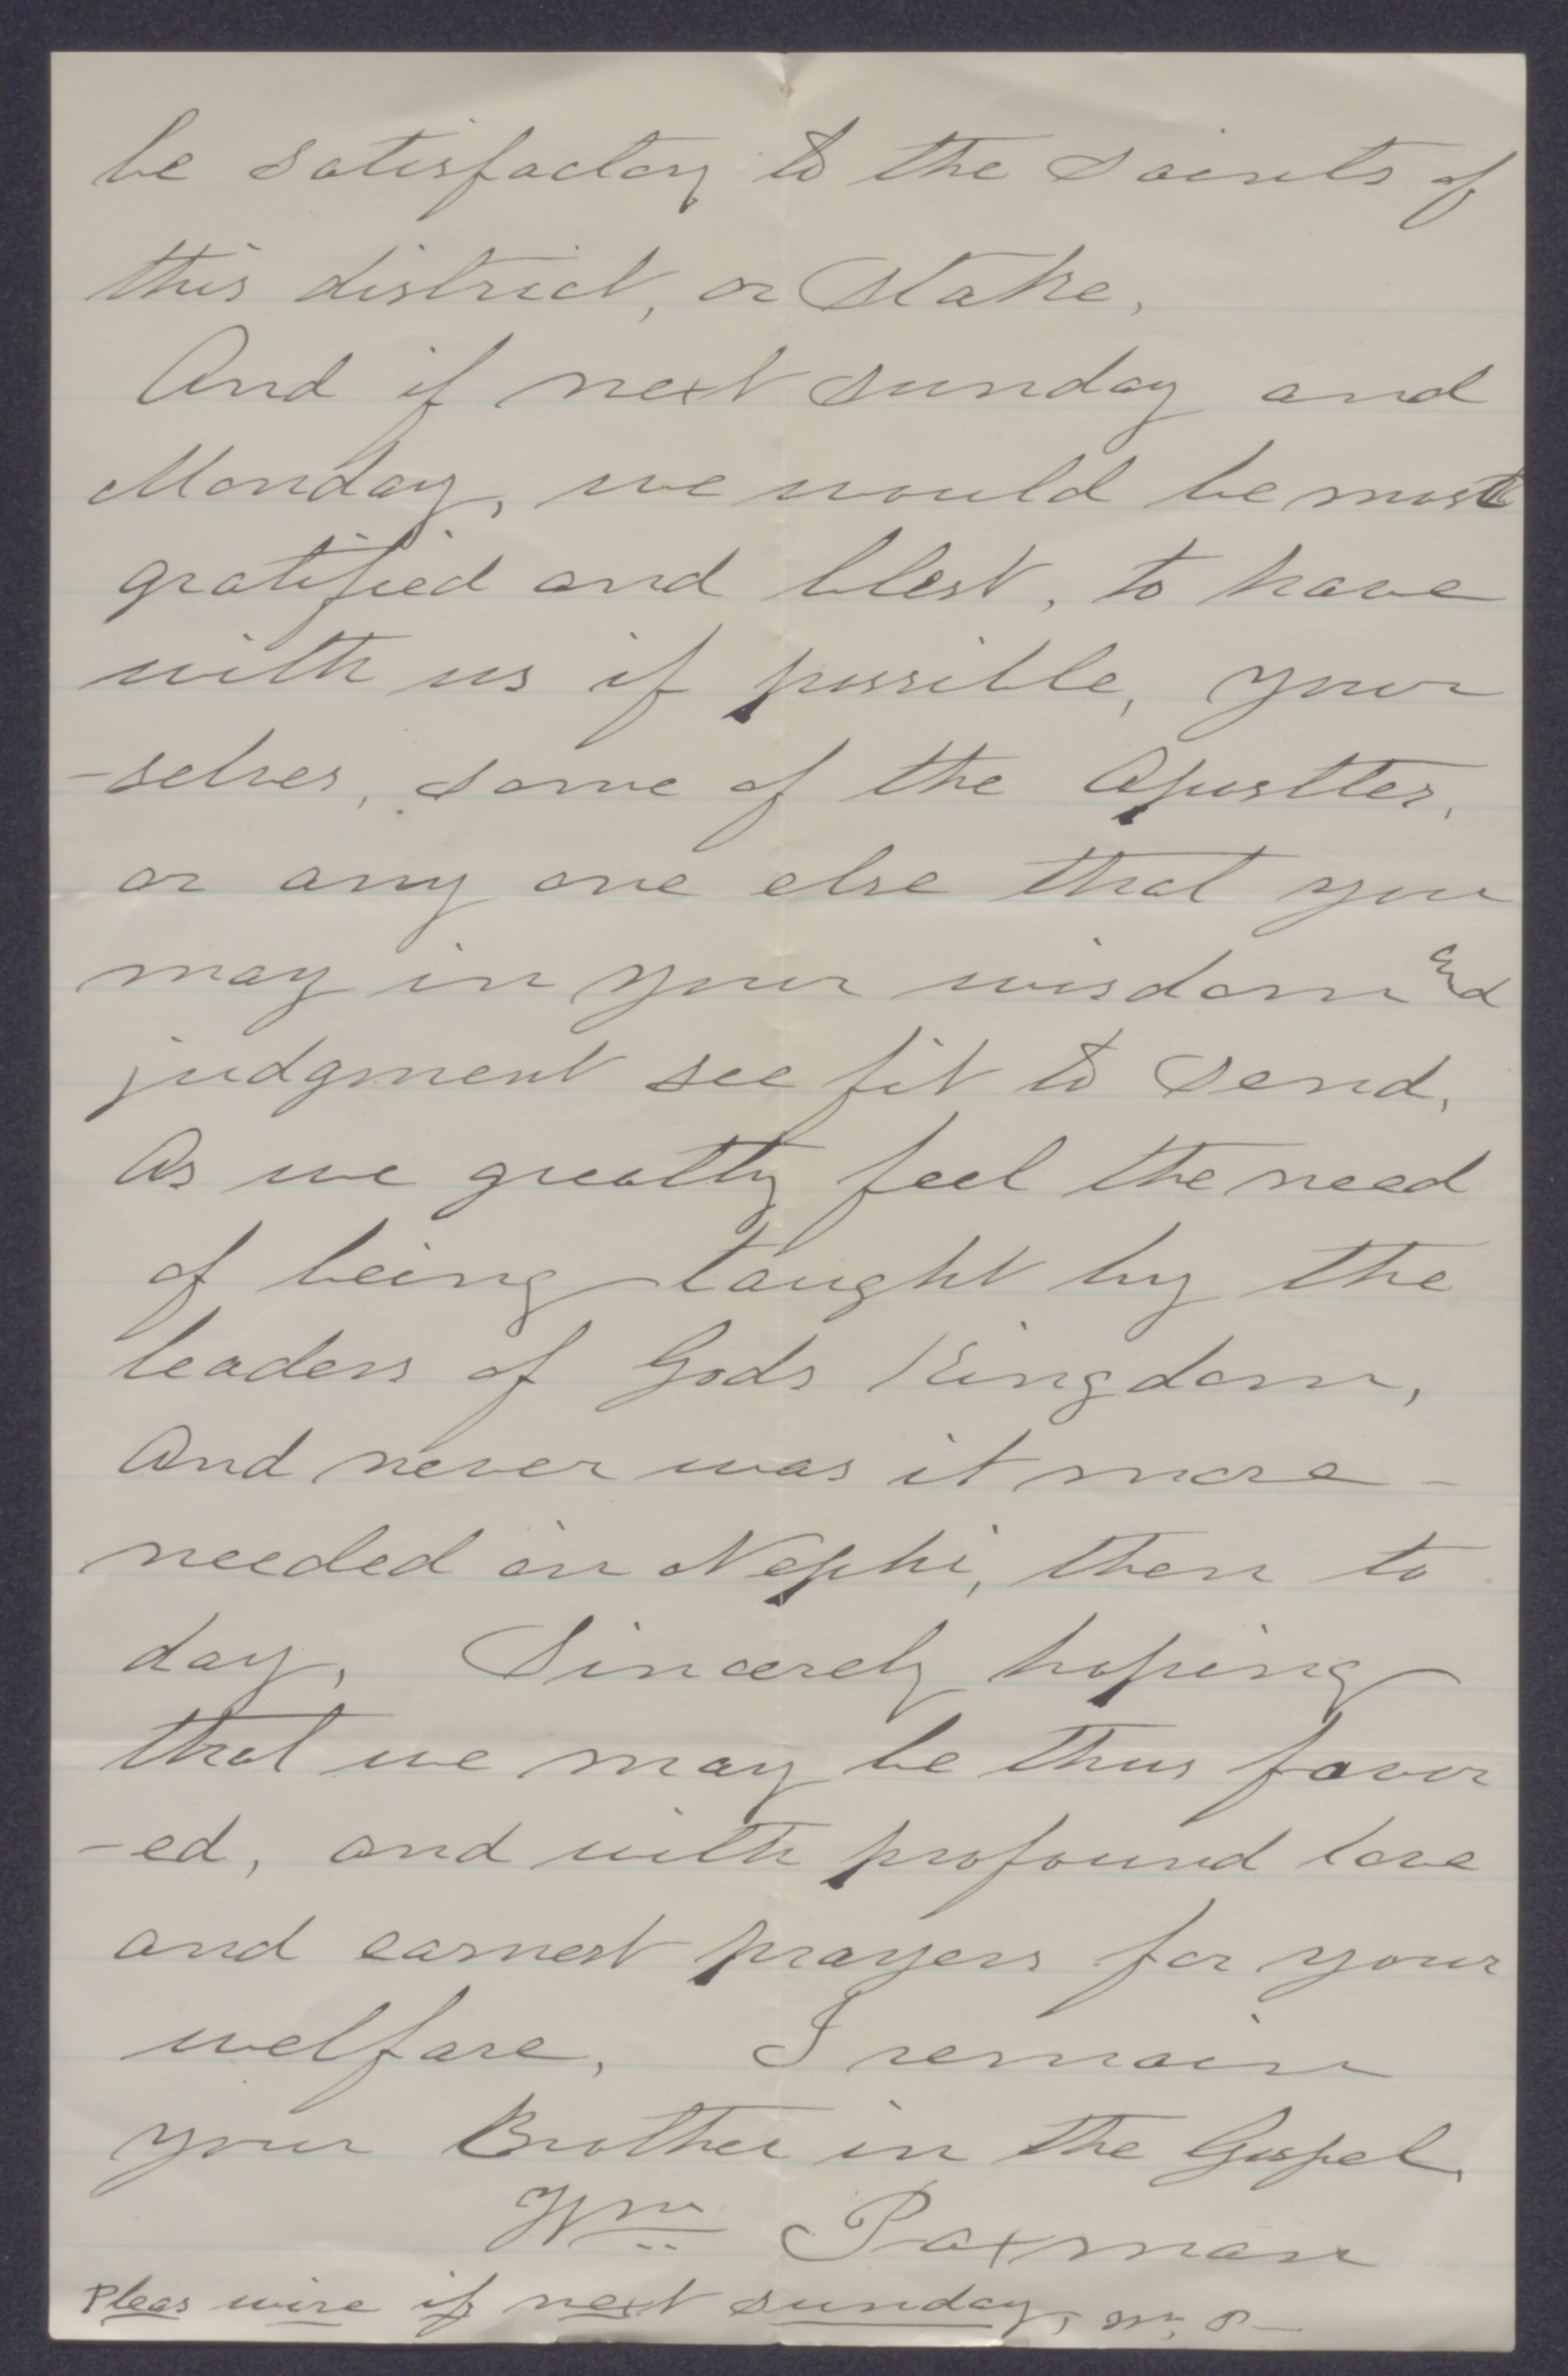 be satisfactory to the Saints of
this district, or Stake,
And if next Sunday and
Monday, we would be most
gratified and blest, to have
with us if possible, your
-selves, some of the Apostles,
or any one else that you
may in your wisdom and
judgment see fit to Send,
As we greatly feel the need
of being taught by the
leaders of Gods Kingdom,
And never was it more -
needed in Nephi, then to
day, Sincerely hoping
that we may be thus favor
-ed, and with profound love
and earnest prayers for your
welfare, I remain
your Brother in the Gospel,
Wm Paxman
Pleas wire if next sunday, Wm P